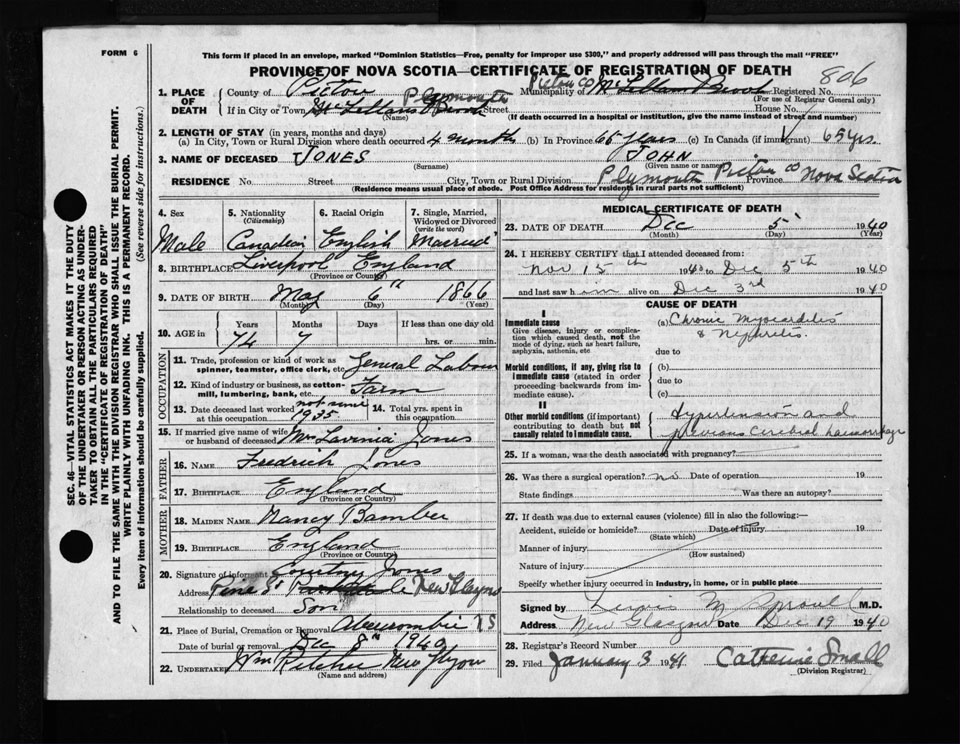 FORM 6
This form if placed in an envelope, marked "Dominion Statistics—Free, penalty for improper use $300," and properly addressed will pass through the mail "FREE"
PROVINCE OF NOVA SCOTIA—CERTIFICATE OF REGISTRATION OF DEATH
806
1. PLACE OF DEATH
County of Pictou Municipality of Pictou Co McLellans Brook Registered No.
(For use of Registrar General only)
If in City or Town Plymouth McLellans Brook Street House No.
(Name) (If death occurred in a hospital or institution, give the name instead of street and number)
2. LENGTH OF STAY (in years, months and days)
(a) In City, Town or Rural Division where death occurred 4 months (b) In Province 65 years (c) In Canada (if immigrant) 65 yrs.
3. NAME OF DECEASED JONES JOHN
(Surname) (Given name or names)
RESIDENCE No. Street City, Town or Rural Division Plymouth Pictou Co Province Nova Scotia
(Residence means usual place of abode. Post Office Address for residents in rural parts not sufficient)
4. Sex 5. Nationality (Citizenship) 6. Racial Origin 7. Single, Married, Widowed or Divorced (write the word)
Male Canadian English Married
8. BIRTHPLACE Liverpool England
(Province or Country)
9. DATE OF BIRTH May 6th 1866
(Month) (Day) (Year)
10. AGE in Years Months Days If less than one day old
74 7 hrs. or min.
OCCUPATION
11. Trade, profession or kind of work as spinner, teamster, office clerk, etc. General Labour
12. Kind of industry or business, as cotton-mill, lumbering, bank, etc. Farm
13. Date deceased last worked at this occupation not since 1935 14. Total yrs. spent in this occupation
15. If married give name of wife or husband of deceased Mrs Lavinia Jones
FATHER
16. NAME Fredrick Jones
17. BIRTHPLACE England
(Province or Country)
MOTHER
18. MAIDEN NAME Nancy Bamber
19. BIRTHPLACE England
(Province or Country)
20. Signature of informant Courtney Jones
Address Pine St New Glasgow
Relationship to deceased Son
21. Place of Burial, Cremation or Removal Abercrombie NS
Date of burial or removal Dec 8th 1940
22. UNDERTAKER Wm Pitcher New Glasgow
(Name and address)
MEDICAL CERTIFICATE OF DEATH
23. DATE OF DEATH Dec 5 1940
(Month) (Day) (Year)
24. I HEREBY CERTIFY that I attended deceased from:
Nov 15th 1940 to Dec 5th 1940
and last saw him alive on Dec 3rd 1940
CAUSE OF DEATH
I
Immediate cause
Give disease, injury or complication which caused death, not the mode of dying, such as heart failure, asphyxia, asthenia, etc
(a) Chronic Myocarditis & Nephritis
due to
Morbid conditions, if any, giving rise to immediate cause (stated in order proceeding backwards from immediate cause).
(b)
due to
(c)
II
Other morbid conditions (if important) contributing to death but not causally related to immediate cause.
Hypertension and previous Cerebral haemorrhage
25. If a woman, was the death associated with pregnancy?
26. Was there a surgical operation? no Date of operation 19
State findings Was there an autopsy?
27. If death was due to external causes (violence) fill in also the following:—
Accident, suicide or homicide? Date of injury 19
(State which)
Manner of injury
(How sustained)
Nature of injury
Specify whether injury occurred in industry, in home, or in public place
Signed by M.D.
Address New Glasgow Date Dec 19 1940
28. Registrar's Record Number
29. Filed January 3 1941 Catherine Small
(Division Registrar)
SEC. 46—VITAL STATISTICS ACT MAKES IT THE DUTY OF THE UNDERTAKER OR PERSON ACTING AS UNDERTAKER TO OBTAIN ALL THE PARTICULARS REQUIRED IN THE "CERTIFICATE OF REGISTRATION OF DEATH" AND TO FILE THE SAME WITH THE DIVISION REGISTRAR WHO SHALL ISSUE THE BURIAL PERMIT.
WRITE PLAINLY WITH UNFADING INK. THIS IS A PERMANENT RECORD.
Every item of information should be carefully supplied. (See reverse side for instructions.)